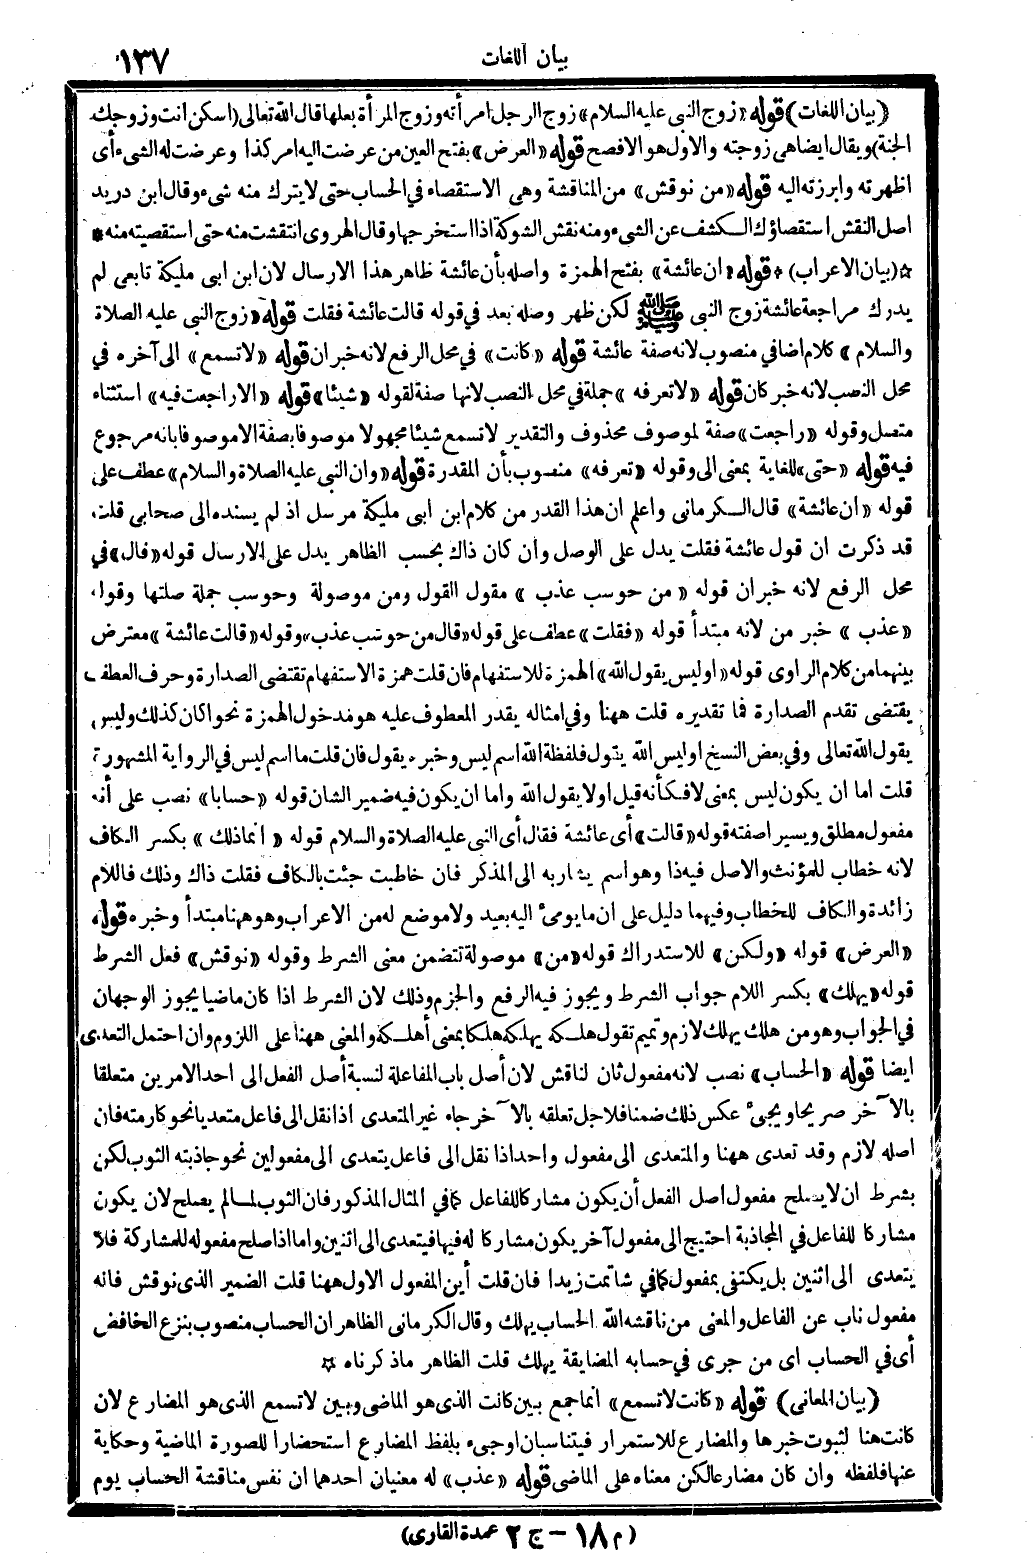 بيان اللغات
١٣٧
(بيان اللغات) قوله «زوج النبى عليه السلام» زوج الرجل امرأته وزوج المرأة بعلها قال الله تعالى (اسكن انت وزوجك
الجنة) ويقال ايضا هى زوجته والاول هو الافصح قوله «العرض» بفتح العين من عرضت اليه امر كذا وعرضت له الشىء أى
اظهرته وابرزته اليه قوله «من نوقش» من المناقشة وهى الاستقصاء في الحساب حتى لا يترك منه شىء وقال ابن دريد
اصل النقش استقصاؤك الكشف عن الشىء ومنه نقش الشوكة اذا استخرجها وقال الهروى انتقشت منه حتى استقصيته منه *
☆ (بيان الاعراب) * قوله «ان عائشة» بفتح الهمزة واصله بأن عائشة ظاهر هذا الارسال لان ابن ابى مليكة تابعى لم
يدرك مراجعة عائشة زوج النبى ﷺ لكن ظهر وصله بعد في قوله قالت عائشة فقلت قوله «زوج النبى عليه الصلاة
والسلام» كلام اضافي منصوب لانه صفة عائشة قوله «كانت» في محل الرفع لانه خبر ان قوله «لا تسمع» الى آخره في
محل النصب لانه خبر كان قوله «لا تعرفه» جملة في محل النصب لانها صفة لقوله «شيئا» قوله «الا راجعت فيه» استثناء
متصل وقوله «راجعت» صفة لموصوف محذوف والتقدير لا تسمع شيئا مجهولا موصوفا بصفة الا موصوفا بانه مرجوع
فيه قوله «حتى» للغاية بمعنى الى وقوله «تعرفه» منصوب بأن المقدرة قوله «وان النبى عليه الصلاة والسلام» عطف على
قوله «ان عائشة» قال الكرمانى واعلم ان هذا القدر من كلام ابن ابى مليكة مرسل اذ لم يسنده الى صحابى قلت
قد ذكرت ان قول عائشة فقلت يدل على الوصل وان كان ذاك بحسب الظاهر يدل على الارسال قوله «قال» في
محل الرفع لانه خبر ان قوله «من حوسب عذب» مقول القول ومن موصولة وحوسب جملة صلتها وقوله
«عذب» خبر من لانه مبتدأ قوله «فقلت» عطف على قوله «قال من حوسب عذب» وقوله «قالت عائشة» معترض
بينهما من كلام الراوى قوله «اوليس يقول الله» الهمزة للاستفهام فان قلت همزة الاستفهام تقتضى الصدارة وحرف العطف
يقتضى تقدم الصدارة فما تقديره قلت ههنا وفي امثاله يقدر المعطوف عليه هو مدخول الهمزة نحو اكان كذلك وليس
يقول الله تعالى وفي بعض النسخ اوليس الله يقول فلفظة الله اسم ليس وخبره يقول فان قلت ما اسم ليس في الرواية المشهورة
قلت اما ان يكون ليس بمعنى لا فكأنه قيل اولا يقول الله واما ان يكون فيه ضمير الشان قوله «حسابا» نصب على أنه
مفعول مطلق ويسيرا صفته قوله «قالت» أى عائشة فقال أى النبى عليه الصلاة والسلام قوله «انما ذلك» بكسر الكاف
لانه خطاب للمؤنث والاصل فيه ذا وهو اسم يشار به الى المذكر فان خاطبت جئت بالكاف فقلت ذاك وذلك فاللام
زائدة والكاف للخطاب وفيهما دليل على ان ما يومىء اليه بعيد ولا موضع له من الاعراب وهو ههنا مبتدأ وخبره قوله
«العرض» قوله «ولكن» للاستدراك قوله «من» موصولة تتضمن معنى الشرط وقوله «نوقش» فعل الشرط
قوله «يهلك» بكسر اللام جواب الشرط ويجوز فيه الرفع والجزم وذلك لان الشرط اذا كان ماضيا يجوز الوجهان
في الجواب وهو من هلك يهلك لازم وتميم تقول هلكه يهلكه هلكا بمعنى أهلكه والمعنى ههنا على اللزوم وان احتمل التعدى
ايضا قوله «الحساب» نصب لانه مفعول ثان لناقش لان أصل باب المفاعلة لنسبة أصل الفعل الى احد الامرين متعلقا
بالآخر صريحا ويجىء عكس ذلك ضمنا فلاجل تعلقه بالآخر جاء غير المتعدى اذا نقل الى فاعل متعديا نحو كارمته فان
اصله لازم وقد تعدى ههنا والمتعدى الى مفعول واحد اذا نقل الى فاعل يتعدى الى مفعولين نحو جاذبته الثوب لكن
بشرط ان لا يصلح مفعول اصل الفعل أن يكون مشاركا للفاعل كما في المثال المذكور فان الثوب لما لم يصلح لان يكون
مشاركا للفاعل في المجاذبة احتيج الى مفعول آخر يكون مشاركا له فيها فيتعدى الى اثنين واما اذا صلح مفعوله للمشاركة فلا
يتعدى الى اثنين بل يكتفى بمفعول كما في شاتمت زيدا فان قلت أين المفعول الاول ههنا قلت الضمير الذى نوقش فانه
مفعول ناب عن الفاعل والمعنى من ناقشه الله الحساب يهلك وقال الكرمانى الظاهر ان الحساب منصوب بنزع الخافض
أى في الحساب اى من جرى في حسابه المضايقة يهلك قلت الظاهر ما ذكرناه ☆
(بيان المعانى) قوله «كانت لا تسمع» انما جمع بين كانت الذى هو الماضى وبين لا تسمع الذى هو المضارع لان
كانت هنا لثبوت خبرها والمضارع للاستمرار فيتناسبان او جىء بلفظ المضارع استحضارا للصورة الماضية وحكاية
عنها فلفظه وان كان مضارعا لكن معناه على الماضى قوله «عذب» له معنيان احدهما ان نفس مناقشة الحساب يوم
(م ١٨ – ج ٢ عمدة القارى)